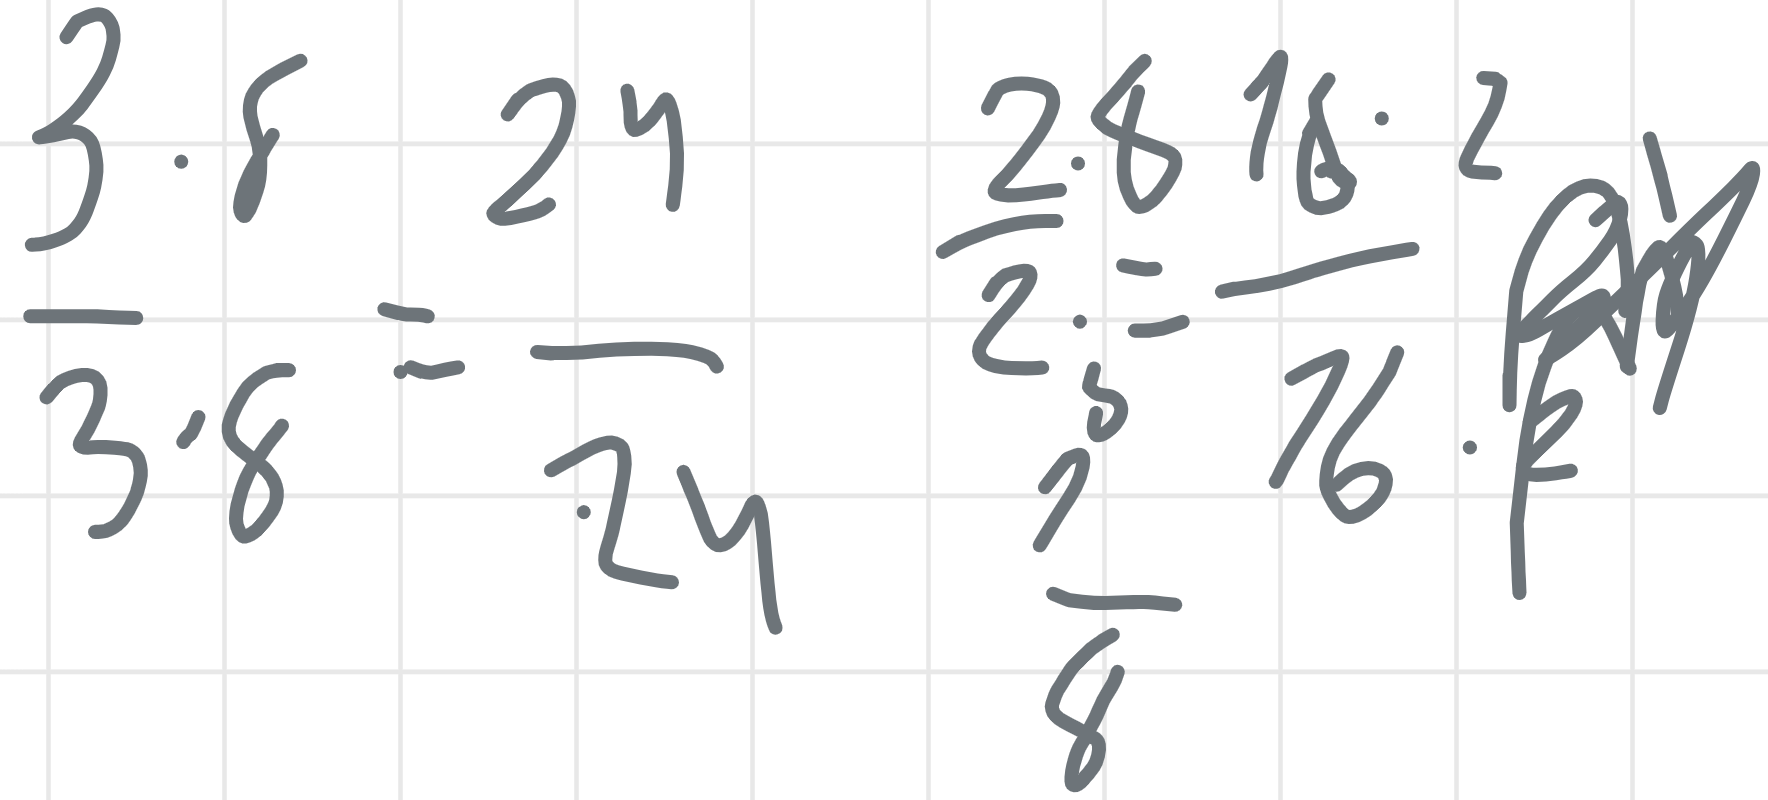 3 · 8 / 3 · 8 = 24 / 24
2 · 8 / 2 · 8 = 16 · 2 / 16 ·
1 / 8